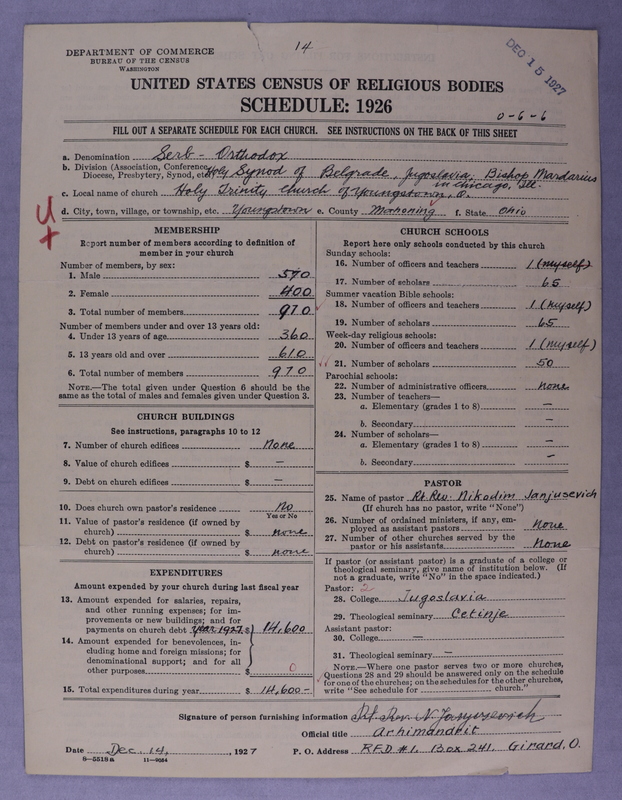 14
DEC 15 1927
DEPARTMENT OF COMMERCE
BUREAU OF THE CENSUS
WASHINGTON
UNITED STATES CENSUS OF RELIGIOUS BODIES
SCHEDULE: 1926
0-6-6
FILL OUT A SEPARATE SCHEDULE FOR EACH CHURCH. SEE INSTRUCTIONS ON THE BACK OF THIS SHEET
a. Denomination Serb-Orthodox
b. Division (Association, Conference, Diocese, Presbytery, Synod, etc.) Holy Synod of Belgrade, Jugoslavia, Bishop Mardarius
in Chicago, Ill.
c. Local name of church Holy Trinity Church of Youngstown, O.
d. City, town, village, or township, etc. Youngstown e. County Mahoning f. State Ohio
MEMBERSHIP
Report number of members according to definition of
member in your church
Number of members, by sex:
1. Male 570
2. Female 400
3. Total number of members 970
Number of members under and over 13 years old:
4. Under 13 years of age 360
5. 13 years old and over 610
6. Total number of members 970
NOTE.—The total given under Question 6 should be the
same as the total of males and females given under Question 3.
CHURCH BUILDINGS
See instructions, paragraphs 10 to 12
7. Number of church edifices None
8. Value of church edifices $ —
9. Debt on church edifices $ —
10. Does church own pastor's residence No
Yes or No
11. Value of pastor's residence (if owned by
church) $ none
12. Debt on pastor's residence (if owned by
church) $ none
EXPENDITURES
Amount expended by your church during last fiscal year
13. Amount expended for salaries, repairs,
and other running expenses; for im-
provements or new buildings; and for
payments on church debt year 1927. $ 14,600
14. Amount expended for benevolences, in-
cluding home and foreign missions; for
denominational support; and for all
other purposes $ 0
15. Total expenditures during year $ 14,600-
CHURCH SCHOOLS
Report here only schools conducted by this church
Sunday schools:
16. Number of officers and teachers 1 (myself)
17. Number of scholars 65
Summer vacation Bible schools:
18. Number of officers and teachers 1 (myself)
19. Number of scholars 65
Week-day religious schools:
20. Number of officers and teachers 1 (myself)
21. Number of scholars 50
Parochial schools:
22. Number of administrative officers none
23. Number of teachers—
a. Elementary (grades 1 to 8) —
b. Secondary —
24. Number of scholars—
a. Elementary (grades 1 to 8) —
b. Secondary —
PASTOR
25. Name of pastor Rt. Rev. Nikodim Janjusevich
(If church has no pastor, write "None")
26. Number of ordained ministers, if any, em-
ployed as assistant pastors none
27. Number of other churches served by the
pastor or his assistants None
If pastor (or assistant pastor) is a graduate of a college or
theological seminary, give name of institution below. (If
not a graduate, write "No" in the space indicated.)
Pastor: 2
28. College Jugoslavia
29. Theological seminary Cetinje
Assistant pastor:
30. College —
31. Theological seminary —
NOTE.—Where one pastor serves two or more churches,
Questions 28 and 29 should be answered only on the schedule
for one of the churches; on the schedules for the other churches,
write "See schedule for church."
Signature of person furnishing information Rt. Rev. N. Janjusevich
Official title Arhimandrit
Date Dec. 14, 1927 P. O. Address R.F.D #1, Box 241, Girard, O.
8-5518a 11-9084